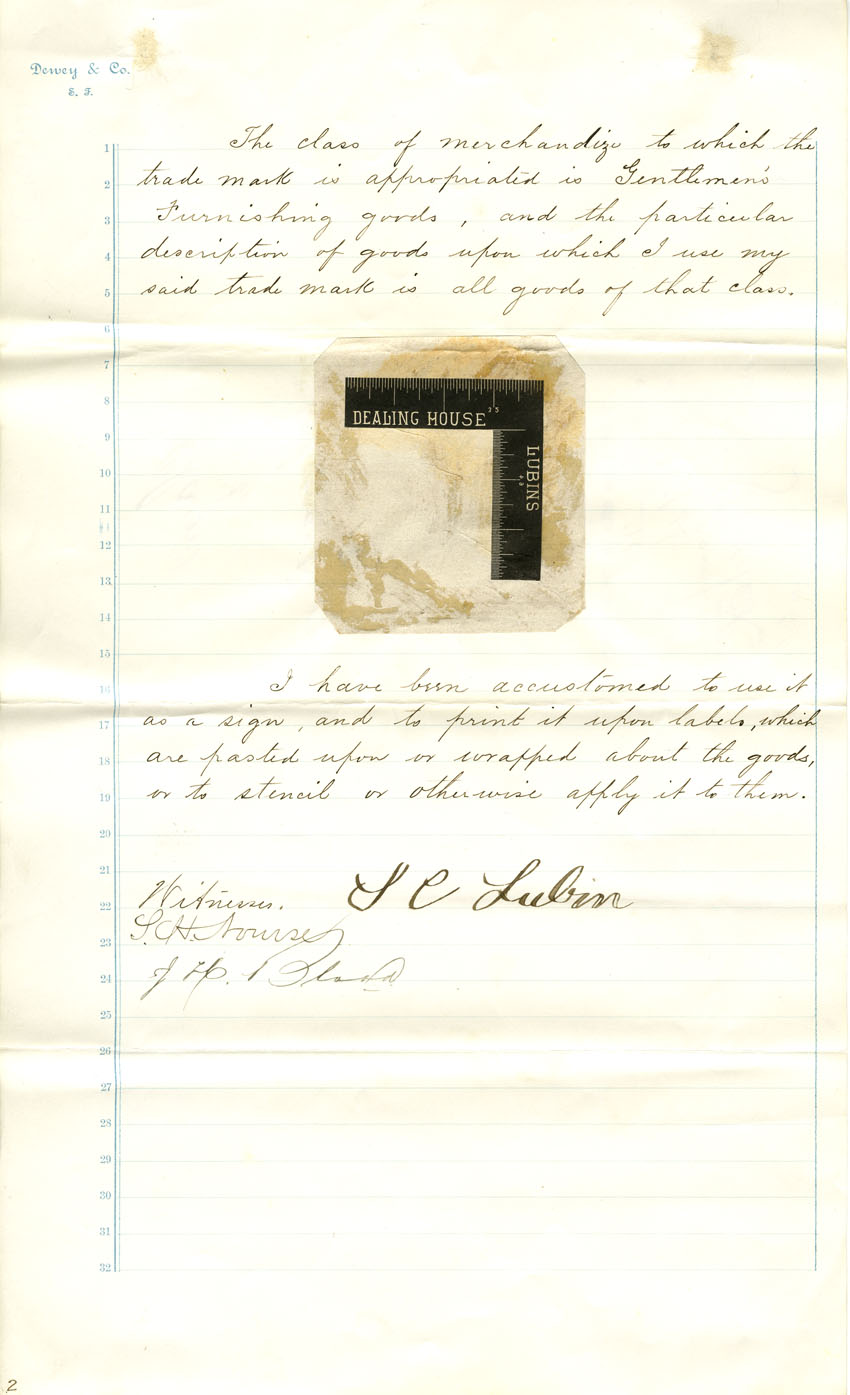 Dewey & Co.
S. F.
1 The class of merchandize to which the
2 trade mark is appropriated is Gentlemen's
3 Furnishing goods, and the particular
4 description of goods upon which I use my
5 said trade mark is all goods of that class.
6
7
8
DEALING HOUSE 25
9
LUBINS
10
11
11
12
13
14
15
16 I have been accustomed to use it
17 as a sign, and to print it upon labels, which
18 are pasted upon or wrapped about the goods,
19 or to stencil or otherwise apply it to them.
20
21
22 Witnesses. S C Lubin
23 S. H. Nourse
24 J H. Blood
25
26
27
28
29
30
31
32
2